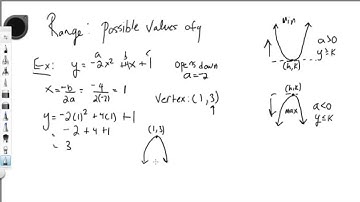 Range: possible values of y
Ex: y = -2x² + 4x + 1 opens down
a b c a = -2
x = -b/2a = -4/2(-2) = 1
vertex: (1,3)
y = -2(1)² + 4(1) + 1
= -2 + 4 + 1
= 3
(1,3)
min
a>0
y≥k
(h,k)
(h,k)
max
a<0
y≤k